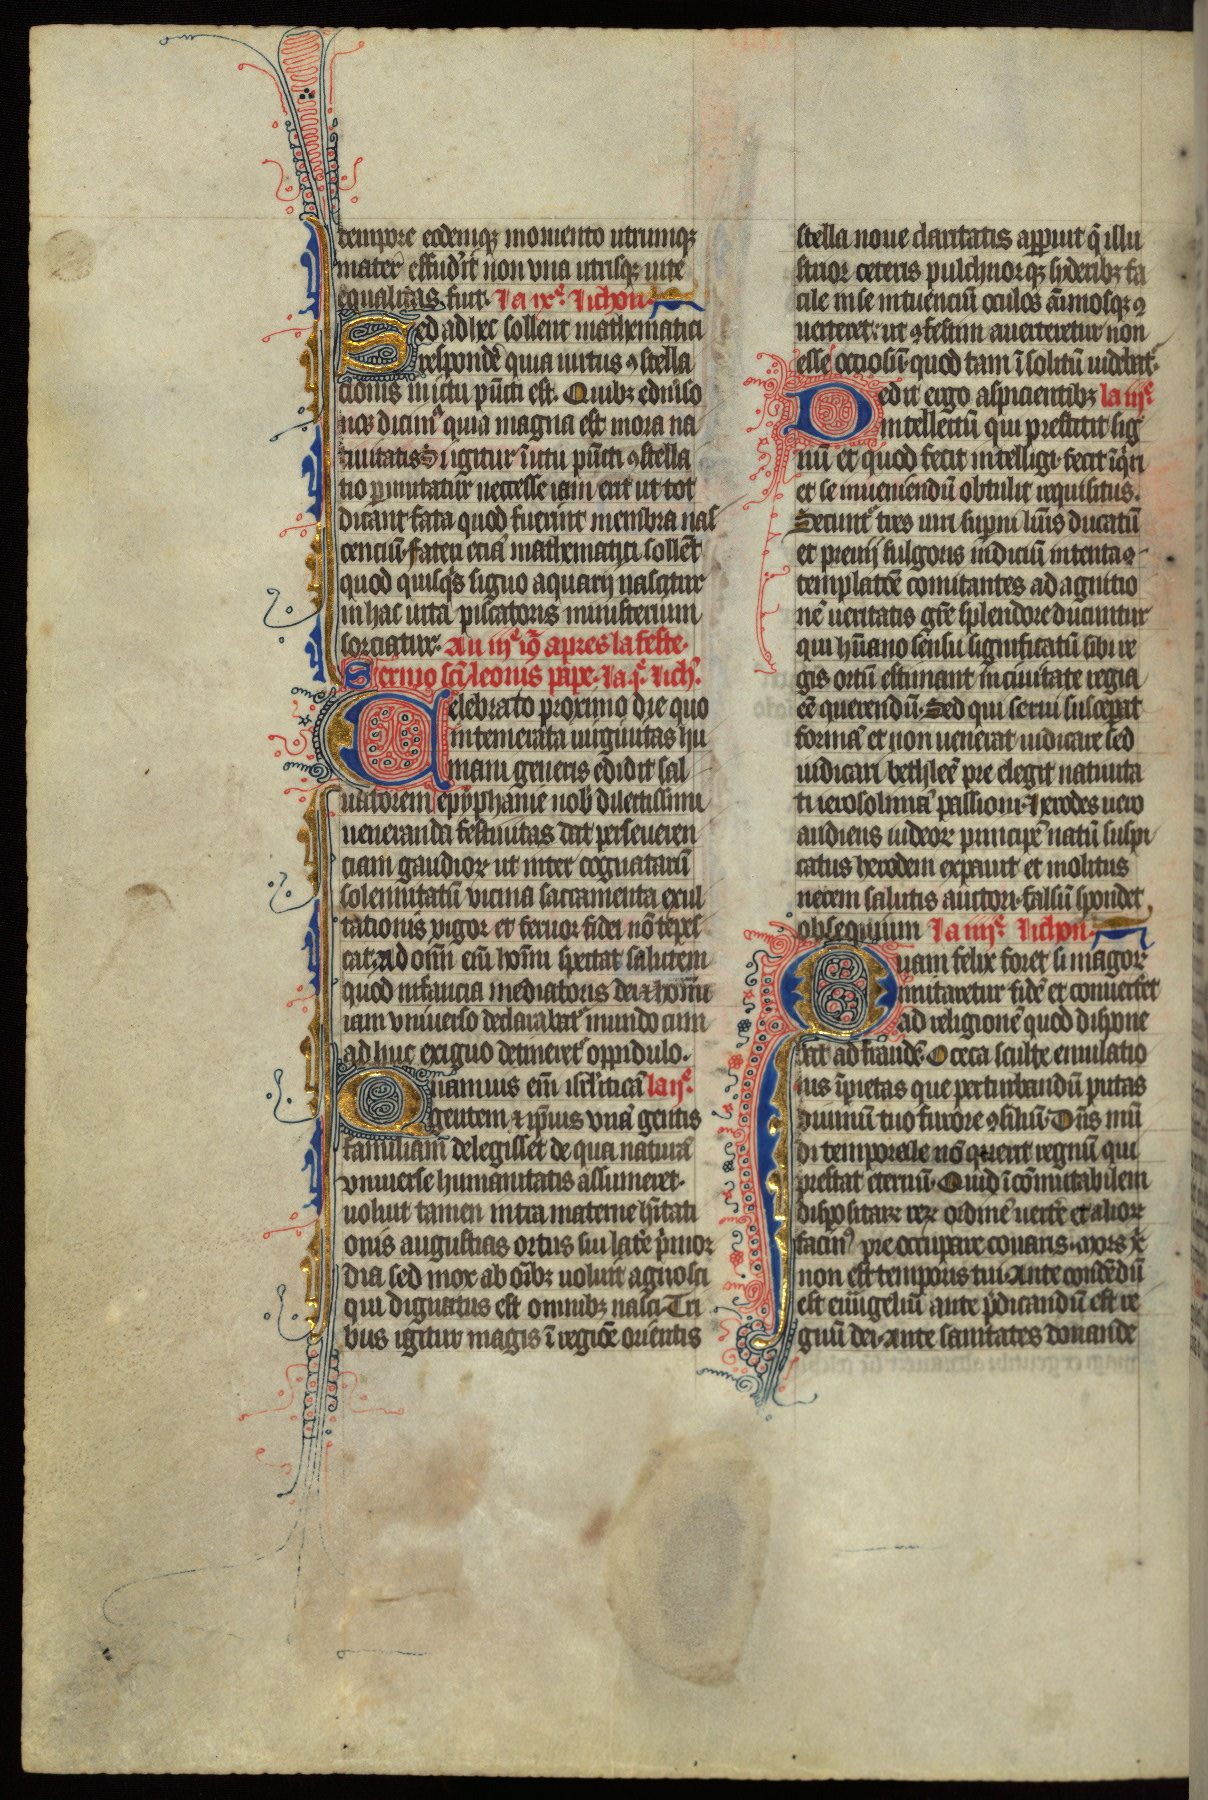 tempore eodemqꝫ momento utrumqꝫ
mater effud'it non vna utrisqꝫ uite
equalitas fuit. La ixͤ. lichon
Sed ad hec solent mathematici
respondē quia uirtus ꝯstella
cionis in ictu pūcti est. Quibꝫ e
noꝫ dicimꝰ quia magna est mora na
tiuitatis Si igitur ī ictu pūcti ꝯstella
tio ꝑmutatur necesse iam erit ut tot
dicant fata quod fuerint membra nas
cenciū. fateri eciā mathematici solēt
quod quisqͥs signo aquarij nascitur
in hac uita piscatoris ministerium
sorciatur. Au iijͤ iō apres la feste.
Sermo scī leonis pape. La .jͤ. lich'.
Celebrato proximo die quo
intemerata uirginitas hu
mani generis edidit sal
uatorem epyphanie nob dilectissimi
ueneranda festiuitas dat perseueren
ciam gaudioꝝ ut inter cognatarū
solennitatū vicina sacramenta exul
tationis vigor et feruor fidei nō tepes
cat. Ad om̄ eīm hoīm spectat salutem
quod infancia mediatoris dei ⁊ hominū
iam vniuerso declarabatᷣ mundo cum
ad huc exiguo detineretᷣ oppidulo.
Quamuis eīm isrl'iticā la ijͤ.
gentem ⁊ ip̄ius vnā gentis
familiam delegisset de qua naturā
vniuerse humanitatis assumeret.
uoluit tamen intra materne h̄itati
onis augustias ortus sui latē p̄mor
dia sed mox ab oībꝫ uoluit agnosci
qui dignatus est omnibꝫ nasci. Tri
bus igitur magis ī regiōe orientis
stella noue claritatis apparuit q̄ illu
strior ceteris pulchriorqꝫ syderibꝫ fa
cile in se intuenciū oculos āimosqꝫ ꝯ
uerteret. ut ꝯfestim auerteretur non
esse ociosū quod tam ī solitū uidebatᷣ.
Dedit ergo aspicientibꝫ la iijͤ
intellectū qui prestitit sig
nū et quod fecit intelligi. fecit īqͥri
et se inueniendū obtulit requisitus.
Secuntᷣ tres uiri supni lūis ducatū
et preuij fulgoris indiciū intenta ꝯ
templatōe comitantes ad agnitio
nē ueritatis grē splendore ducuntur
qui hūano sensu significatū sibi re
gis ortū estimant in ciuitate regia
eē querendū. Sed qui serui susceperat
formā et non uenerat iudicare sed
iudicari bethleē pre elegit natiuita
ti ierosolimā passioni. Herodes uero
audiens iudeoꝝ principē natū suspi
catus herodem expauit et molitus
necem salutis auctori. falsū spondet
obsequium La iiijͤ lichon
Quam felix foret si magoꝝ
imitaretur fidē et conuerteret
ad religionē quod dispone
bat ad fraudē. O ceca stulte emulatio
nis īpietas que perturbandū putas
diuinū tuo furore ꝯsiliū. Dn̄s mū
di temporale nō querit regnū qui
prestat eternū. Quid īcōmutabilem
dispositaꝝ reꝝ ordinē uertē et alioꝝ
facinꝰ pre occupare conaris. mors xp̄i
non est temporis tui. Ante condēdū
est euūgeliū ante p̄dicandū est re
gnū dei. Ante sanitates donande